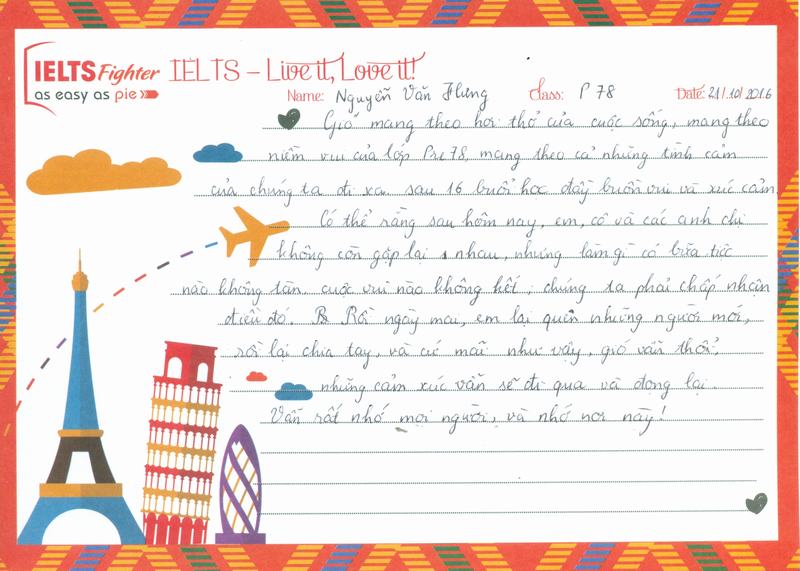 IELTS Fighter
as easy as pie
IELTS – Live it, Love it!
Name: Nguyễn Văn Hưng Class: P 78 Date: 21/10/2016
Gió mang theo hơi thở của cuộc sống, mang theo
niềm vui của lớp Pre 78, mang theo cả những tình cảm
của chúng ta đi xa sau 16 buổi học đầy buồn vui và xúc cảm.
Có thể rằng sau hôm nay, em, cô và các anh chị
không còn gặp lại nhau, nhưng làm gì có bữa tiệc
nào không tàn, cuộc vui nào không kết; chúng ta phải chấp nhận
điều đó. Rồi ngày mai, em lại quen những người mới,
rồi lại chia tay, và cứ mãi như vậy, gió vẫn thổi,
những cảm xúc vẫn sẽ đi qua và đọng lại.
Vẫn rất nhớ mọi người, và nhớ nơi này!